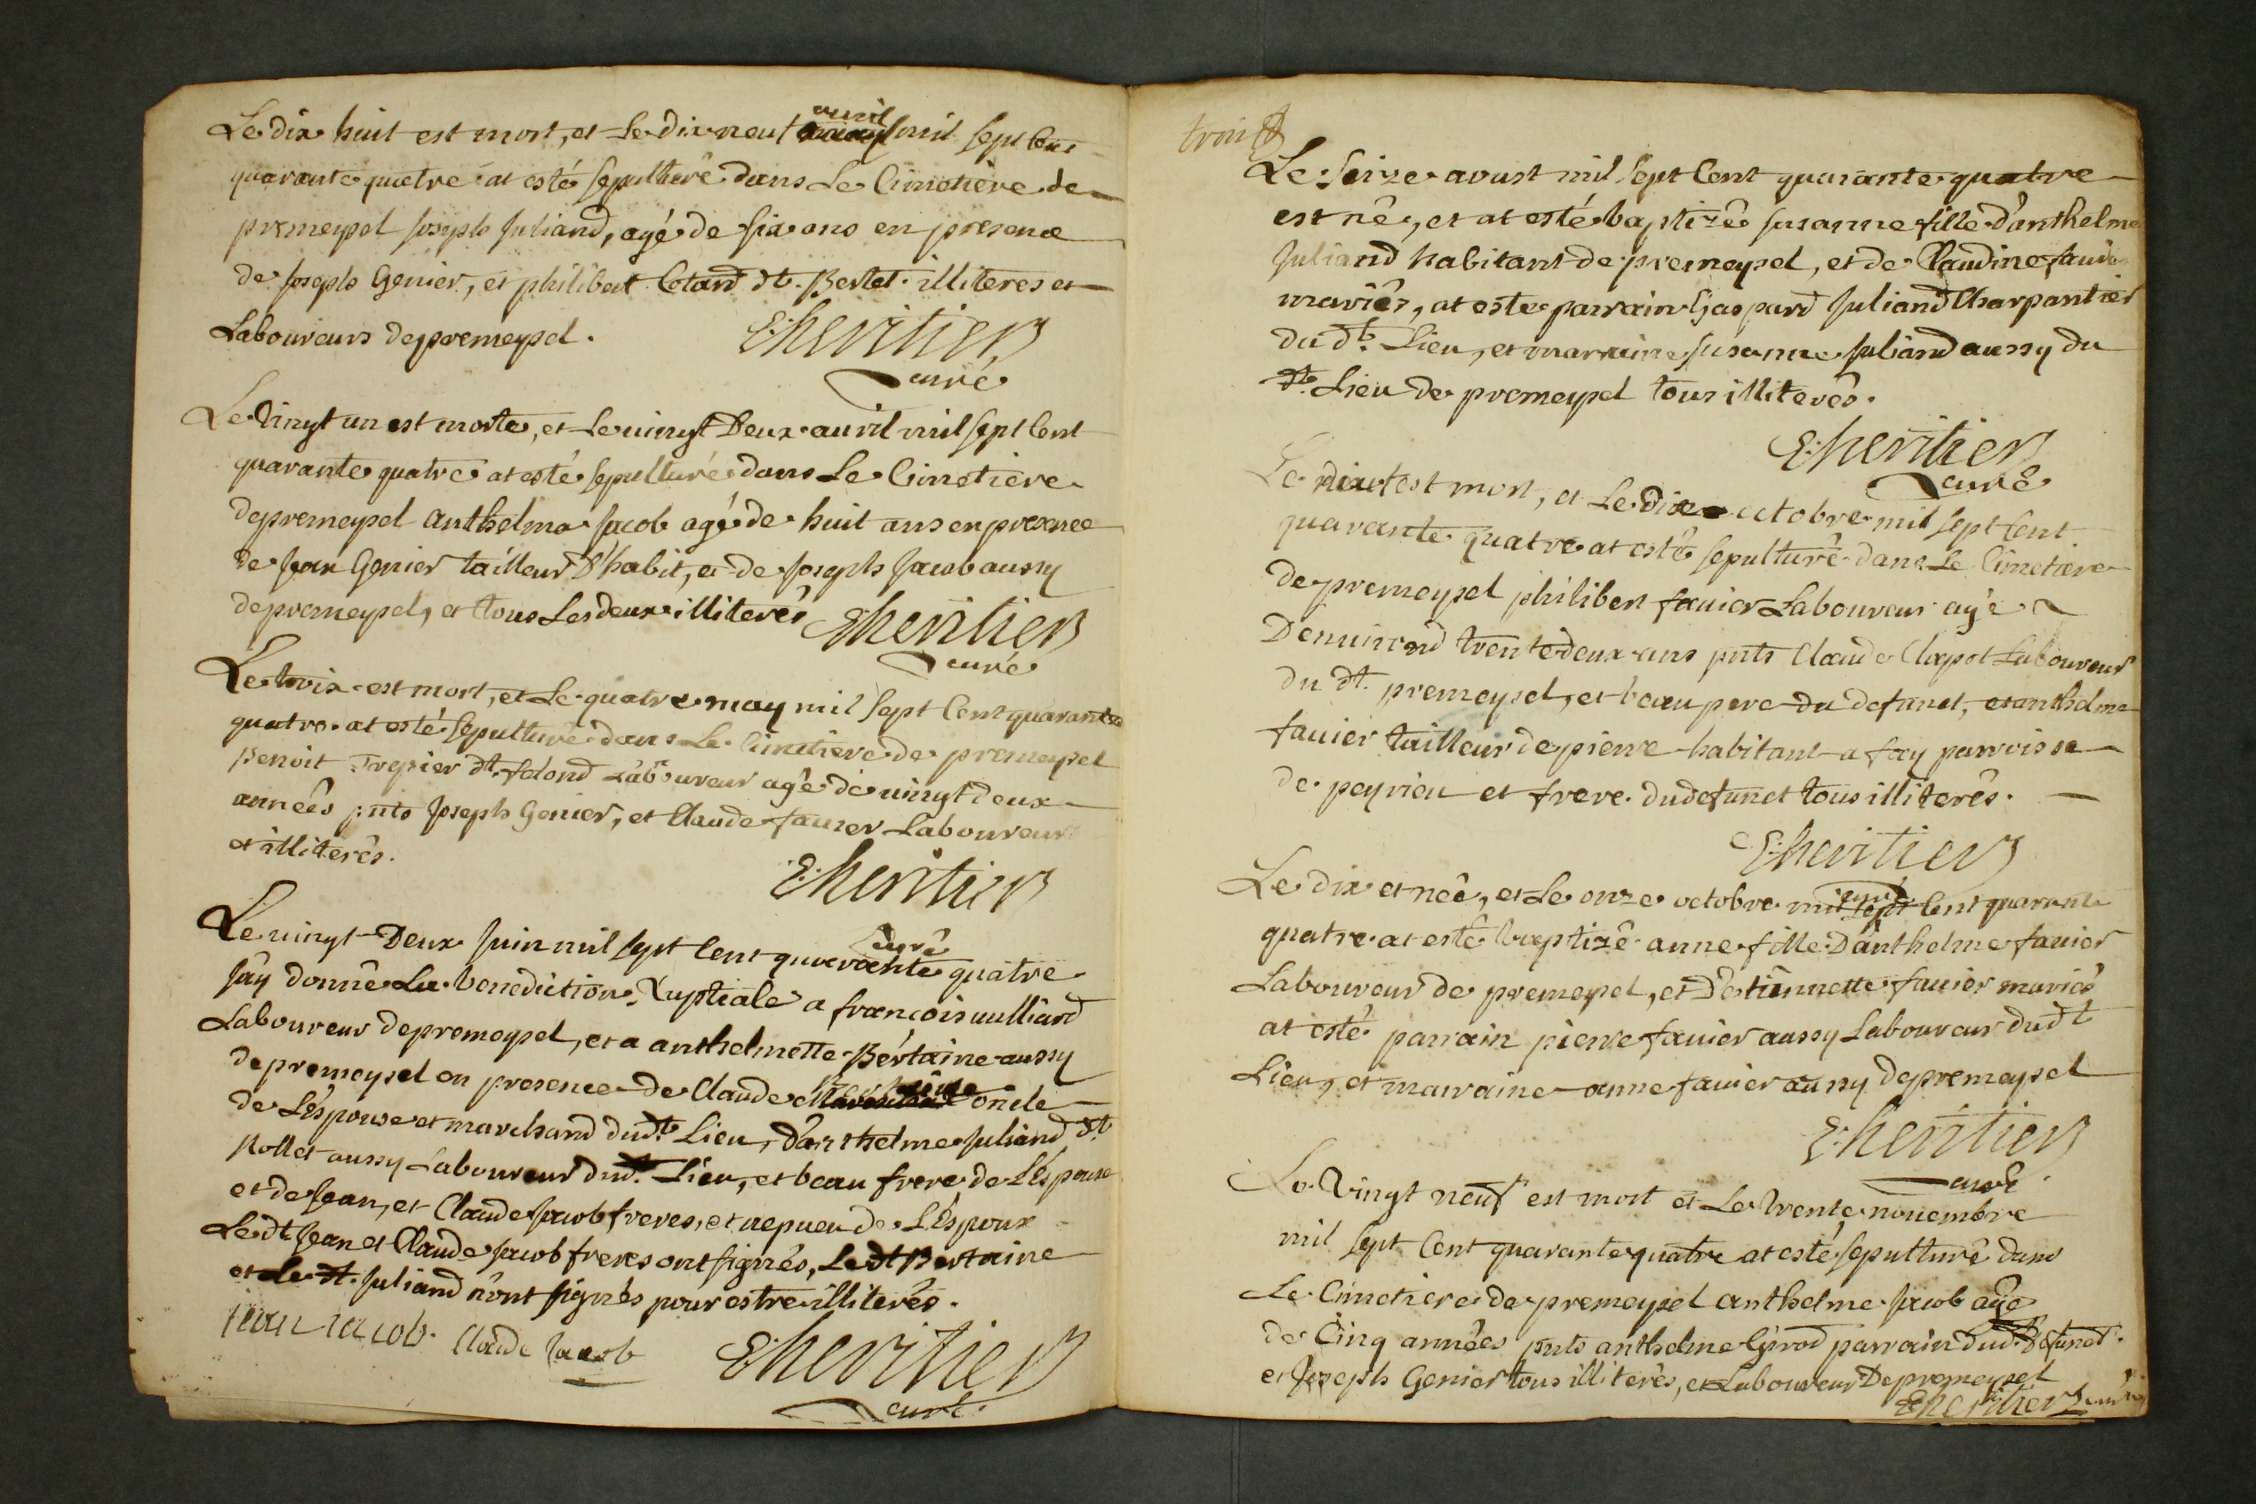 Le dix huit est mort, et Le dix neuf avril mil sept Cent
quarante quatre at esté sepulturê dans Le Cimetiere de
premeysel joseph Juliand, agé de six ans en presence
de joseph Genier, et philibert Cotard dt. Bertet illiteres et
Laboureurs de premeysel.
E: heritier
curé
Le Vingt un est morte, et Le vingt Deux auril mil sept Cent
quarante quatre at esté sepulturé dans Le Cimetiere
de premeysel anthelma Jacob agé de huit ans en presence
de jean Genier tailleur d'habit, et de joseph Jacob aussy
de premeysel, et tous Les deux illiterês
E: heritier
curé
Le trois est mort, et Le quatre may mil sept Cent quarante
quatre at esté sepulturé dans Le Cimetiere de premeysel
Benoit Trepier dt. felond Laboureur agê de vingt deux
années pnts Joseph Genier, et Claude fauier Laboureurs
et illiterês.
E: heritier
curê
Le vingt Deux Juin mil sept Cent quarante quatre
jay donnê La benediction Nuptiale a francois vulliard
Laboureur de premeysel, et a anthelmette Bertaine aussy
de premeysel en presence de Claude oncle
de L'espouse et marchand dudt. Lieu, d'anthelme Juliand dt.
Rollet aussy Laboureur dudt. Lieu, et beau frere de L'espouse
et de Jean, et Claude Jacob freres, et nepueu de L'espoux
Le dt Jean et Claude Jacob freres ont signés, Le dt Bertaine
et Le dt. Juliand n'ont signés pour estre illiterês.
jean iacob. Claude Jacob
E: heritier
curé.
trois
Le Seize aoust mil sept Cent quarante quatre
est nê, et at esté baptizê susanne fille d'anthelme
Juliand habitant de premeysel, et de Claudine fauier
mariês, at este parrain Gaspard Juliand Charpantier
du dt. Lieu, et marraine susanne Juliand aussy du
dt. Lieu de premeysel tous illiterês.
E: heritier
curé
Le est mort, et Le dix octobre mil sept Cent
quarante quatre at estê sepulturê dans Le Cimetiere
de premeysel philibert fauier Laboureur agé
Denuirond trente deux ans pnts Claude Clapot Laboureur
du dt. premeysel, et beau pere du defunct, et anthelme
fauier tailleur de pierre habitant a fay parroisse
de peyrieu et frere du defunct tous illiterês.
E: heritier
curé
Le dix et née, et Le onze octobre mil sept Cent quarante
quatre at estê baptizê anne fille D'anthelme fauier
Laboureur de premeysel, et D'estiennette fauier mariês
at esté parrain pierre fauier aussy Laboureur dudt
Lieu, et marraine anne fauier aussy de premeysel
E: heritier
curé.
Le Vingt neuf est mort et Le trente nouembre
mil sept Cent quarante quatre at esté sepulturê dans
Le Cimetiere de premeysel anthelme Jacob agé
de Cinq années pnts anthelme Girod parrain dudt. defunct.
et Joseph Genier tous illiterês, et Laboureur De premeysel
E: heritier curé